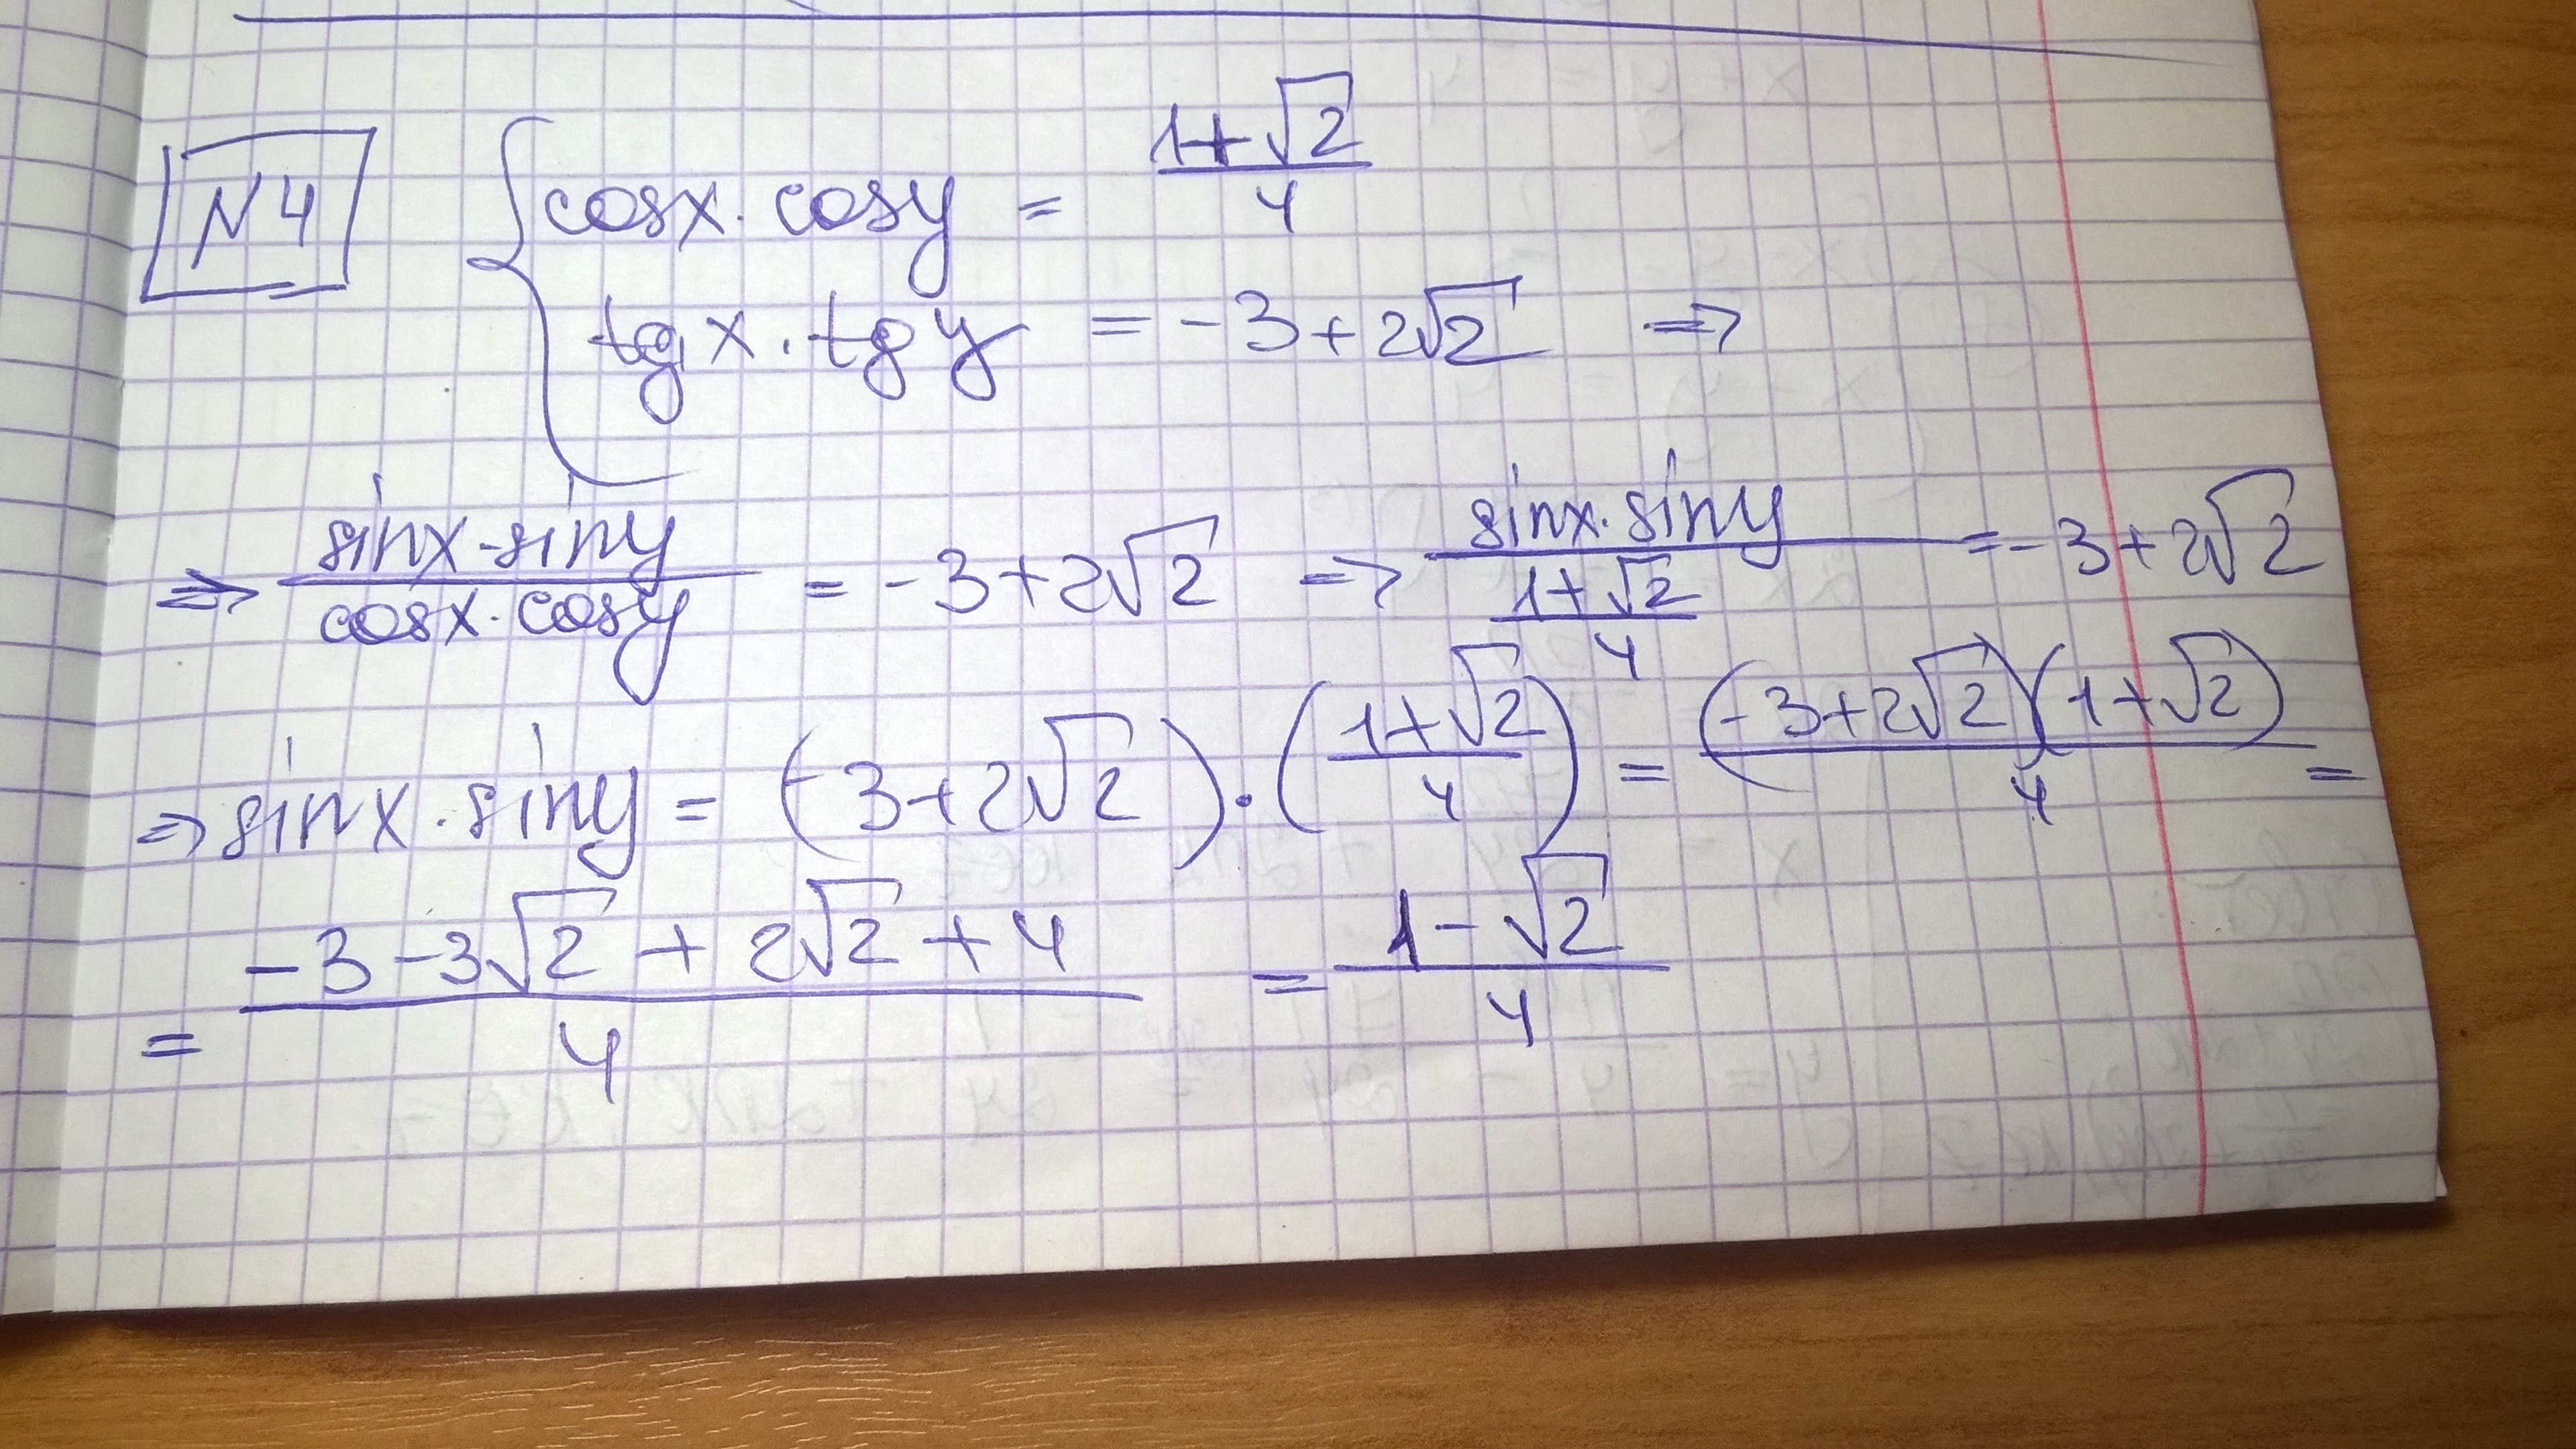 N4 { cosx · cosy = (1+√2)/4
tg x · tg y = -3+2√2 ⇒
⇒ (sinx · siny)/(cosx · cosy) = -3+2√2 ⇒ (sinx · siny)/((1+√2)/4) = -3+2√2
⇒ sinx · siny = (-3+2√2) · ((1+√2)/4) = ((-3+2√2)(1+√2))/4 =
= (-3-3√2+2√2+4)/4 = (1-√2)/4